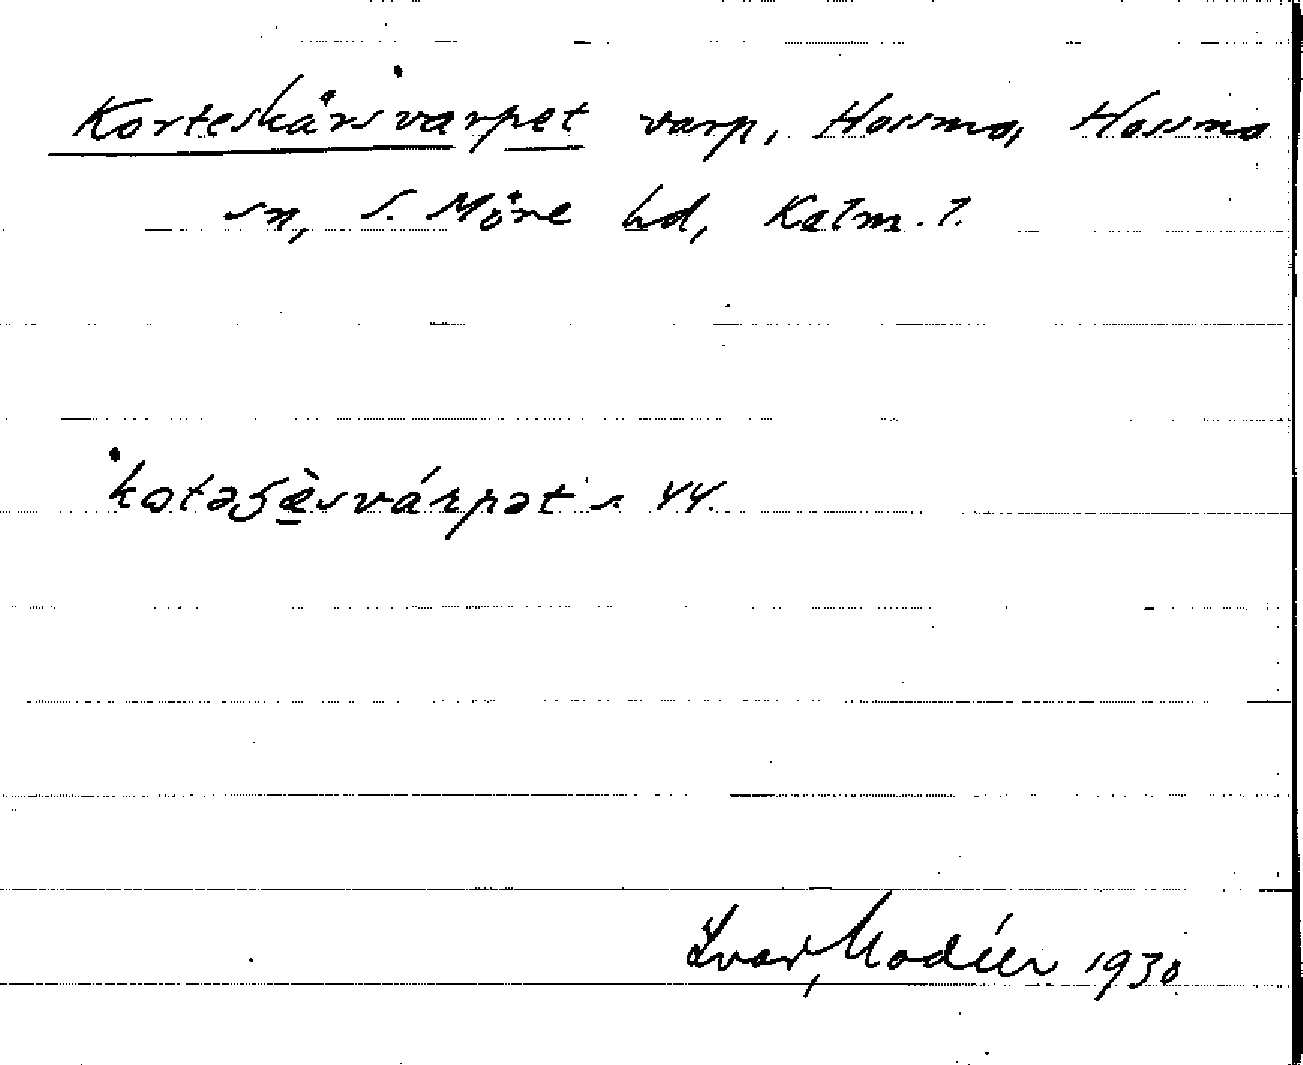 Korteskärsvarpet varp, Hossmo, Hossmo
sn, S. Möre hd, Kalm. l.
s. 44.
Ivar Modéer 1930